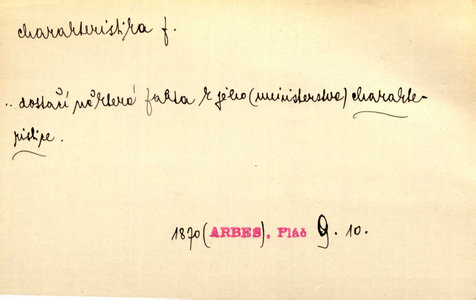 charakteristika f.
.. dostačí některá fakta k jeho (ministerstva) charakte-
ristice.
1870 (ARBES), Pláč 9. 10.